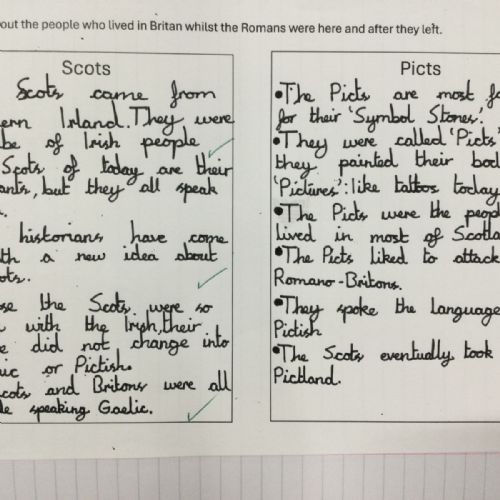 out the people who lived in Britan whilst the Romans were here and after they left.
Scots
Scots came from
ern Irland. They were
be of Irish people
Scots of today are their
ants, but they all speak
historians have come
th a new idea about
ots.
se the Scots were so
with the Irish, their
e did not change into
ic or Pictish.
cots and Britons were all
le speaking Gaelic.
Picts
•The Picts are most fa
for their 'Symbol Stones'.
•They were called 'Picts'
they painted their bod
'Pictures': like tattos today
•The Picts were the peop
lived in most of Scotla
•The Picts liked to attack
Romano-Britons.
•They spoke the language
Pictish
•The Scots eventually took
Pictland.